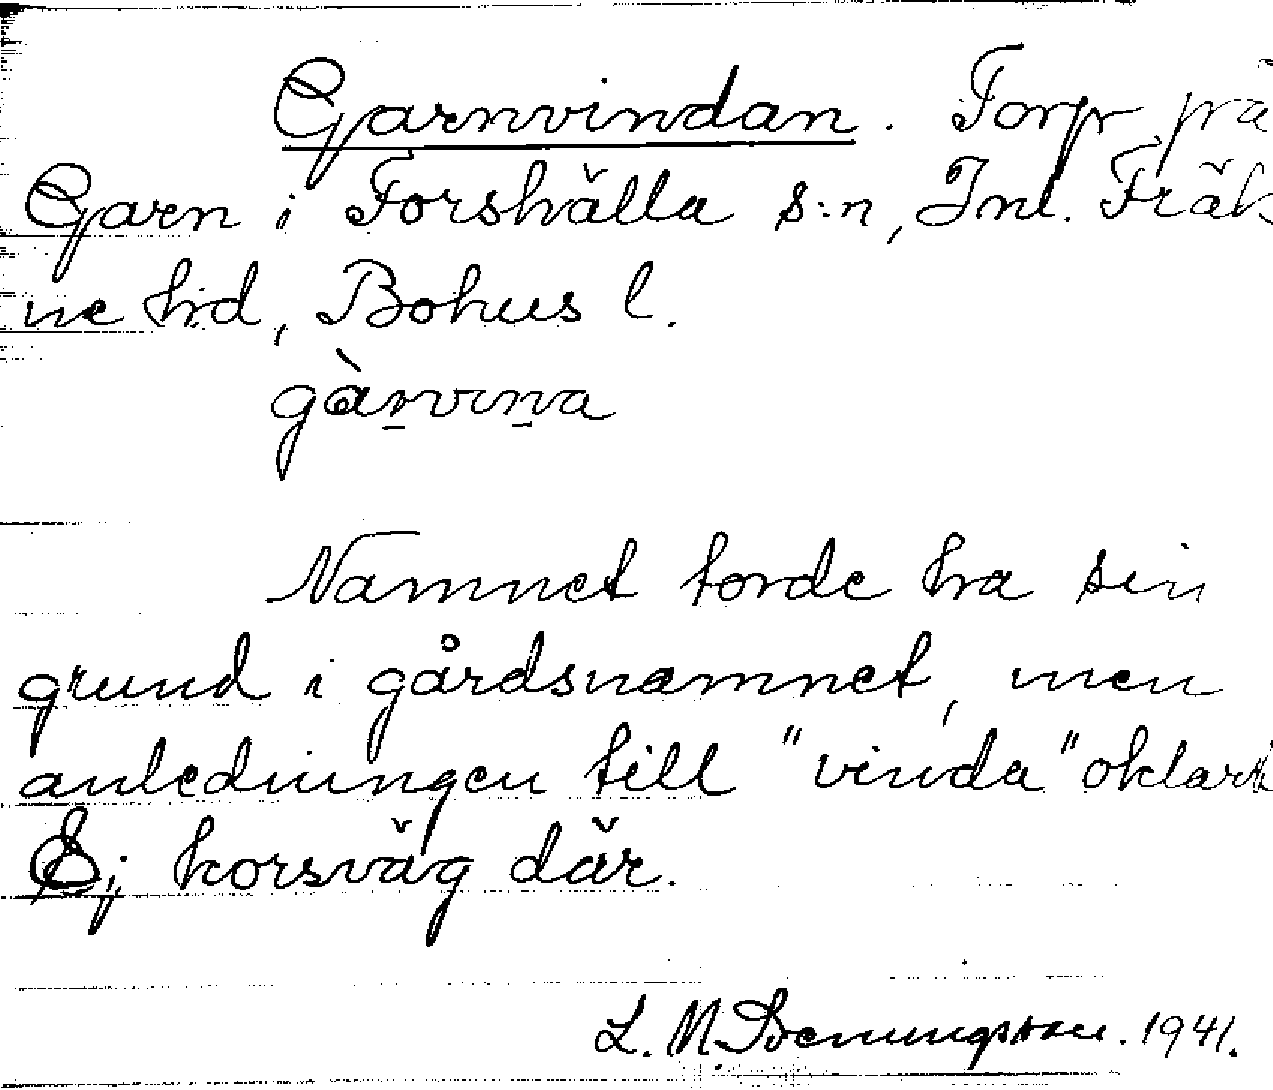 Garnvindan. Torp på
Garn i Forshälla s:n, Inl. Fräk-
ne hd, Bohus l.
gàṉvıṉa
Namnet torde ha sin
grund i gårdsnamnet, men
anledningen till "vinda" oklart
Ej korsväg där.
L. M. Svenungsson. 1941.